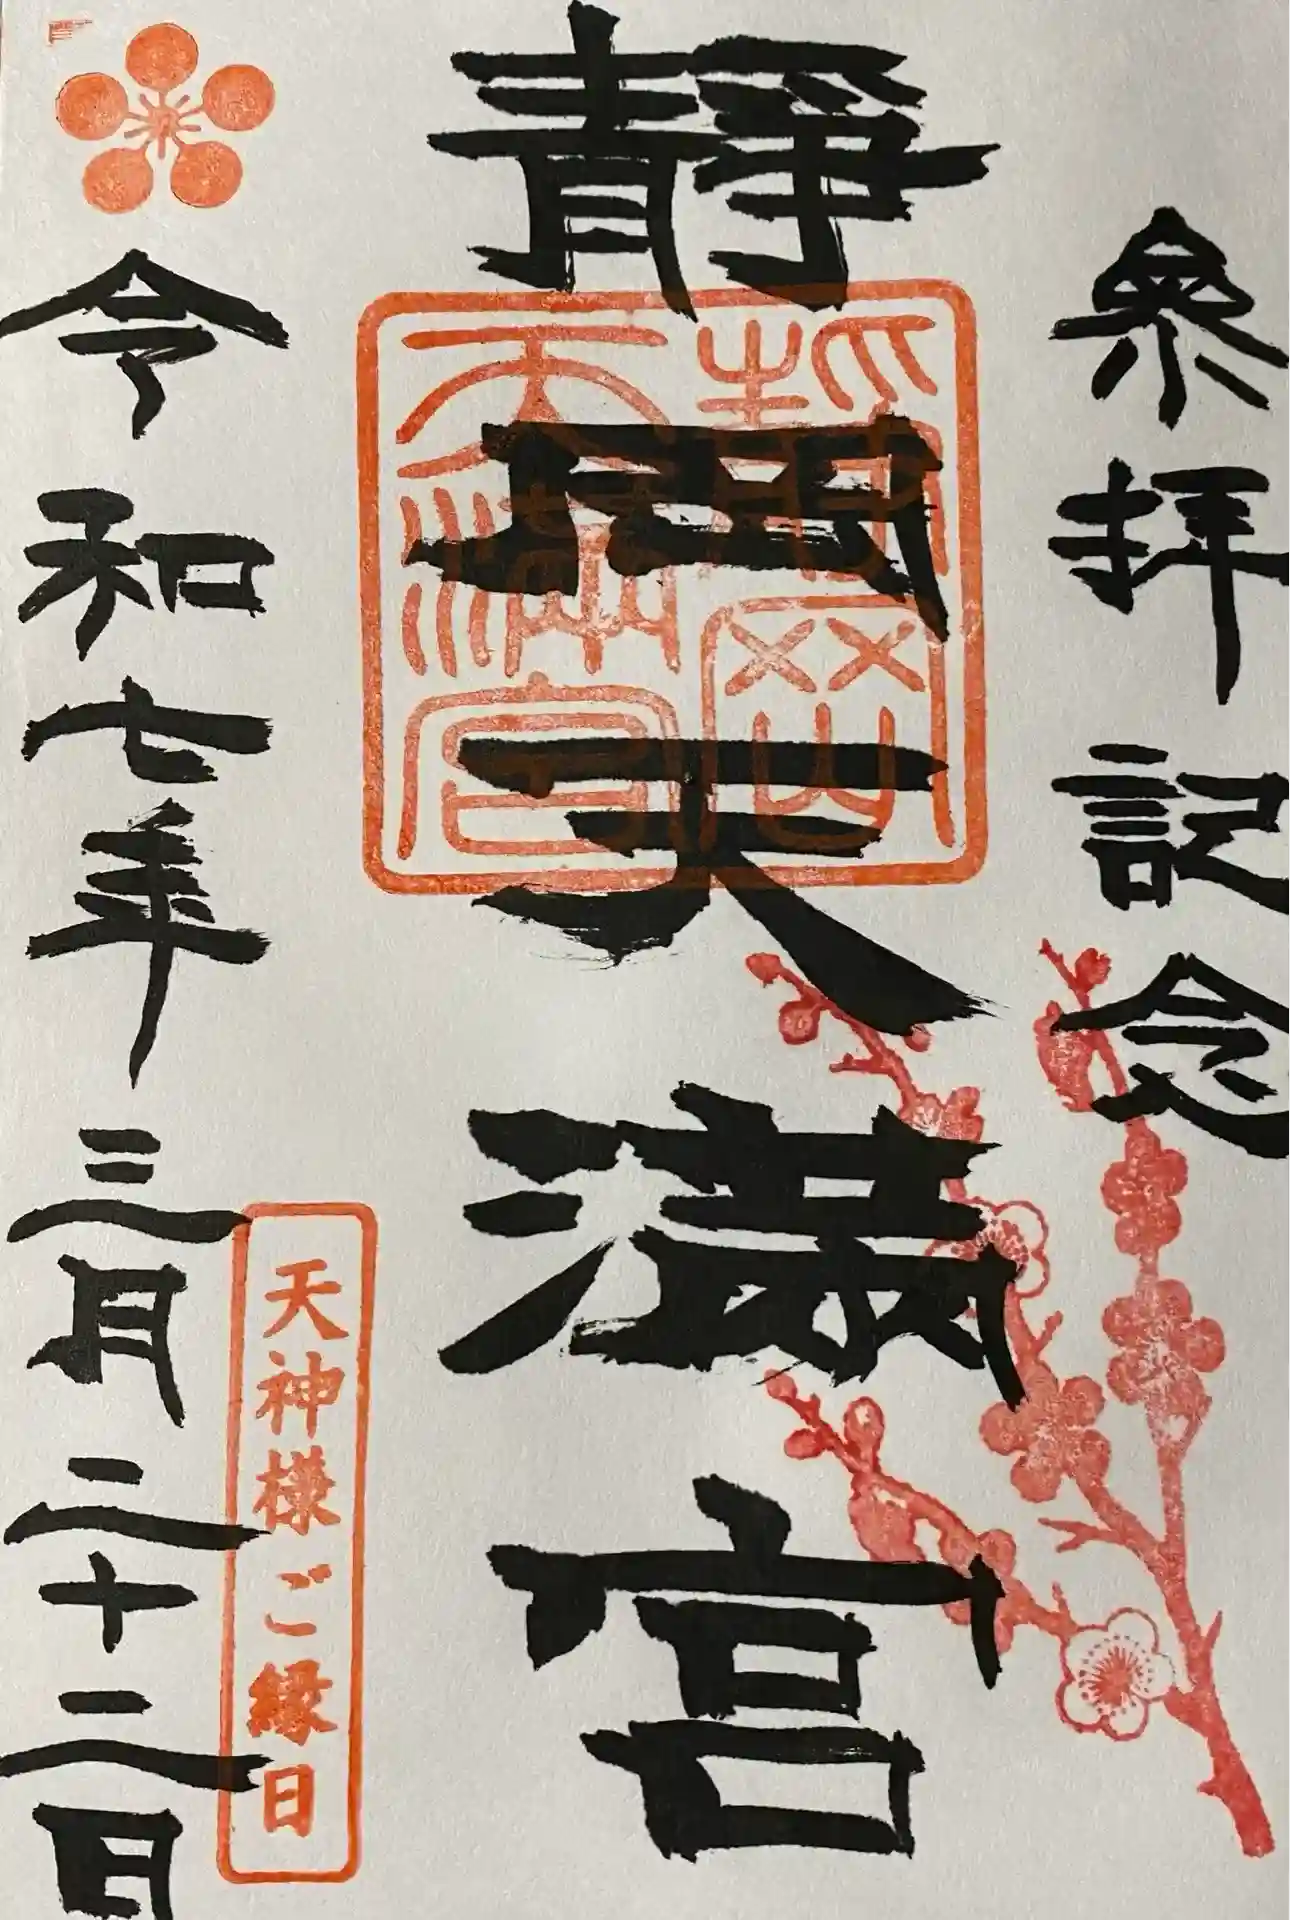 參拜記念
靜岡天満宮
静岡天満宮
令和七年三月二十二日
天神様ご縁日